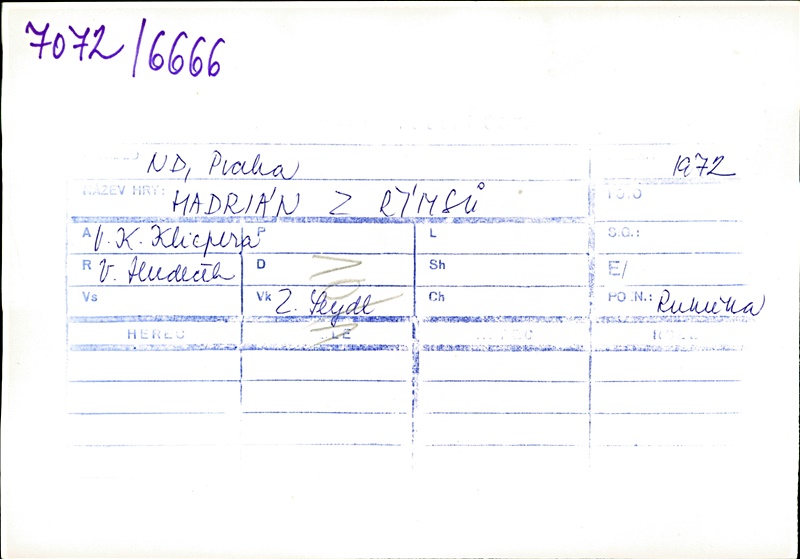 7072/6666
ND, Praha 1972
NÁZEV HRY: HADRIÁN Z ŘÍMSŮ
A V. K. Klicpera P L S.G.:
R V. Hudeček D Sh E/
Vs Vk Z. Seydl Ch PO.N.:
HEREC